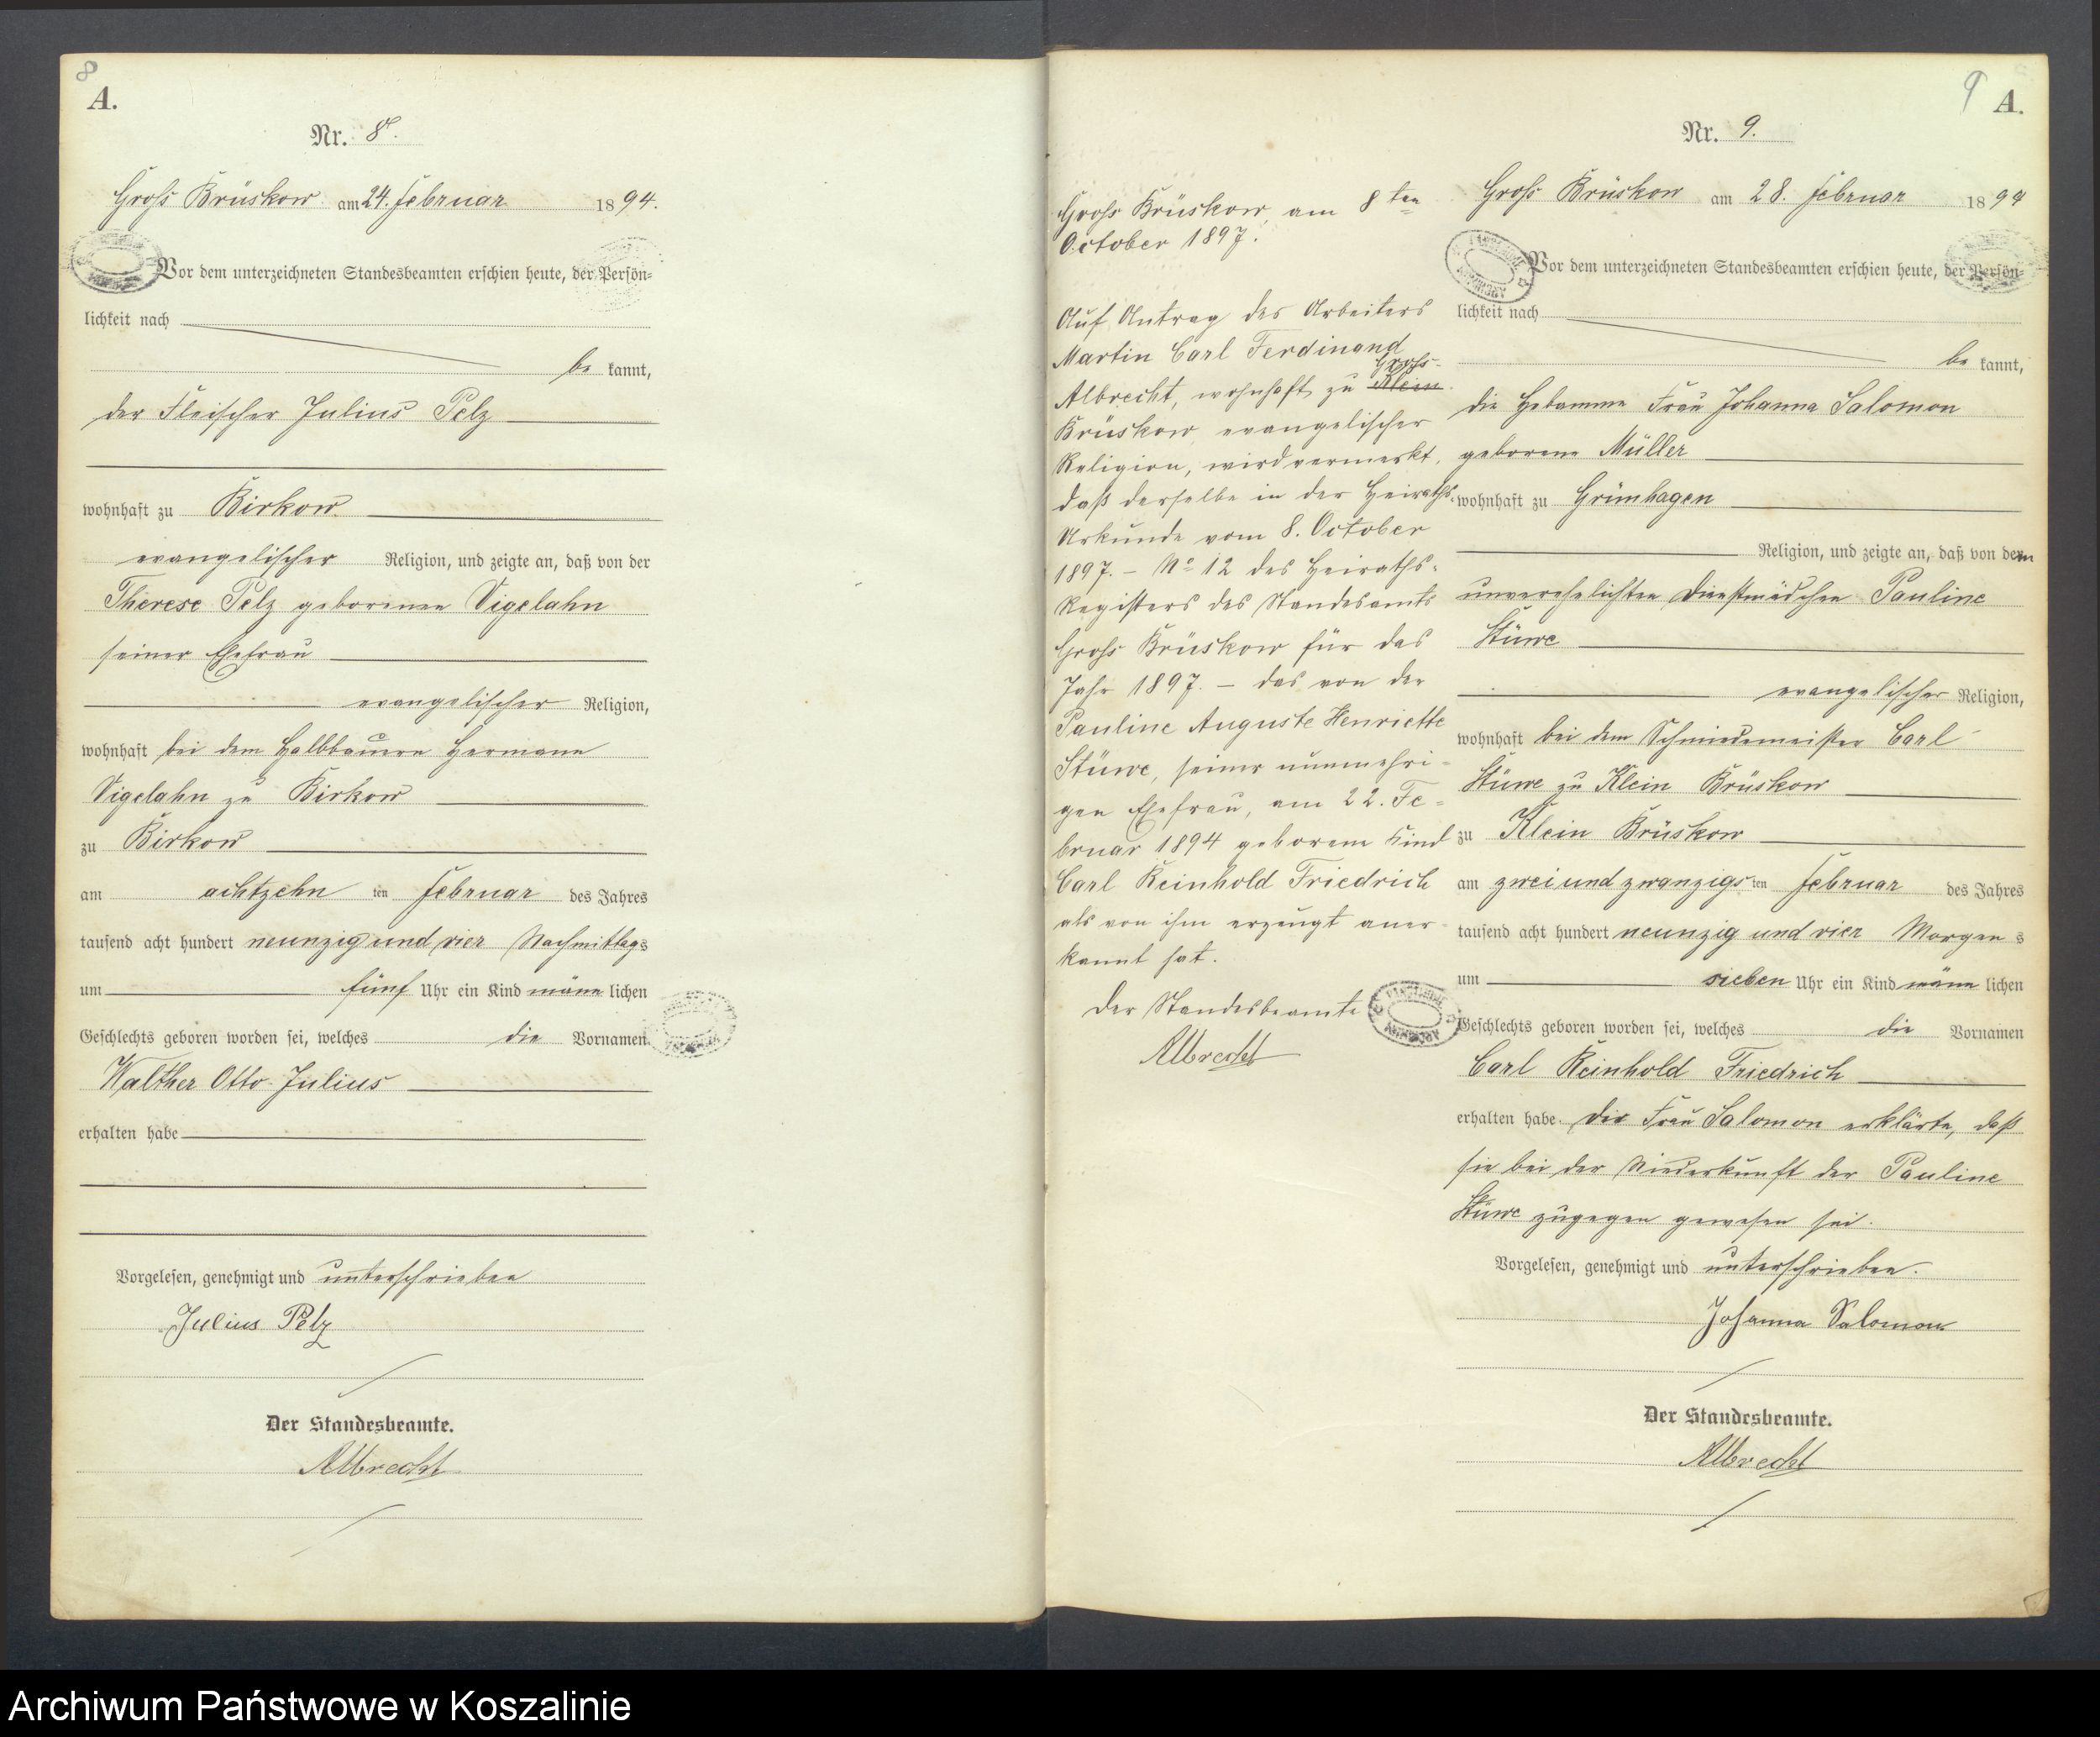 8
A.
Nr. 8.
Gross Brüskow am 24. Februar 1894.
Vor dem unterzeichneten Standesbeamten erschien heute, der Persön-
lichkeit nach
be kannt,
der Fleischer Julius Pelz
wohnhaft zu Birkow
evangelischer Religion, und zeigte an, daß von der
Therese Pelz geborenen Vigelahn
seiner Ehefrau
evangelischer Religion,
wohnhaft bei dem Halbbauern Hermann
Vigelahn zu Birkow
zu Birkow
am achtzehn ten Februar des Jahres
tausend acht hundert neunzig und vier Nachmittags
um fünf Uhr ein Kind männ lichen
Geschlechts geboren worden sei, welches die Vornamen
Walther Otto Julius
erhalten habe
Vorgelesen, genehmigt und unterschrieben
Julius Pelz
Der Standesbeamte.
Albrecht
Gross Brüskow, am 8ten
October 1897.
Auf Antrag des Arbeiters
Martin Carl Ferdinand
Gross-
Albrecht, wohnhaft zu Klein
Brüskow, evangelischer
Religion, wird vermerkt,
daß derselbe in der Heiraths-
Urkunde vom 8. October
1897. – No 12 des Heiraths-
Registers des Standesamts
Gross Brüskow für das
Jahr 1897. – das von der
Pauline Auguste Henriette
Stüwe, seiner nunmehri-
gen Ehefrau, am 22. Fe-
bruar 1894 geborene Kind
Carl Reinhold Friedrich
als von ihm erzeugt aner-
kannt hat.
Der Standesbeamte
Albrecht
9
A.
Nr. 9.
Gross Brüskow am 28. Februar 1894
Vor dem unterzeichneten Standesbeamten erschien heute, der Persön-
lichkeit nach
be kannt,
die Hebamme Frau Johanna Salomon
geborene Müller
wohnhaft zu Grünhagen
Religion, und zeigte an, daß von dem
unverehelichten Dienstmädchen Pauline
Stüwe
evangelischer Religion,
wohnhaft bei dem Schmiedemeister Carl
Stüwe zu Klein Brüskow
zu Klein Brüskow
am zwei und zwanzigs ten Februar des Jahres
tausend acht hundert neunzig und vier Morgen s
um sieben Uhr ein Kind männ lichen
Geschlechts geboren worden sei, welches die Vornamen
Carl Reinhold Friedrich
erhalten habe. Die Frau Salomon erklärte, daß
sie bei der Niederkunft der Pauline
Stüwe zugegen gewesen sei.
Vorgelesen, genehmigt und unterschrieben.
Johanna Salomon
Der Standesbeamte.
Albrecht
Archiwum Państwowe w Koszalinie